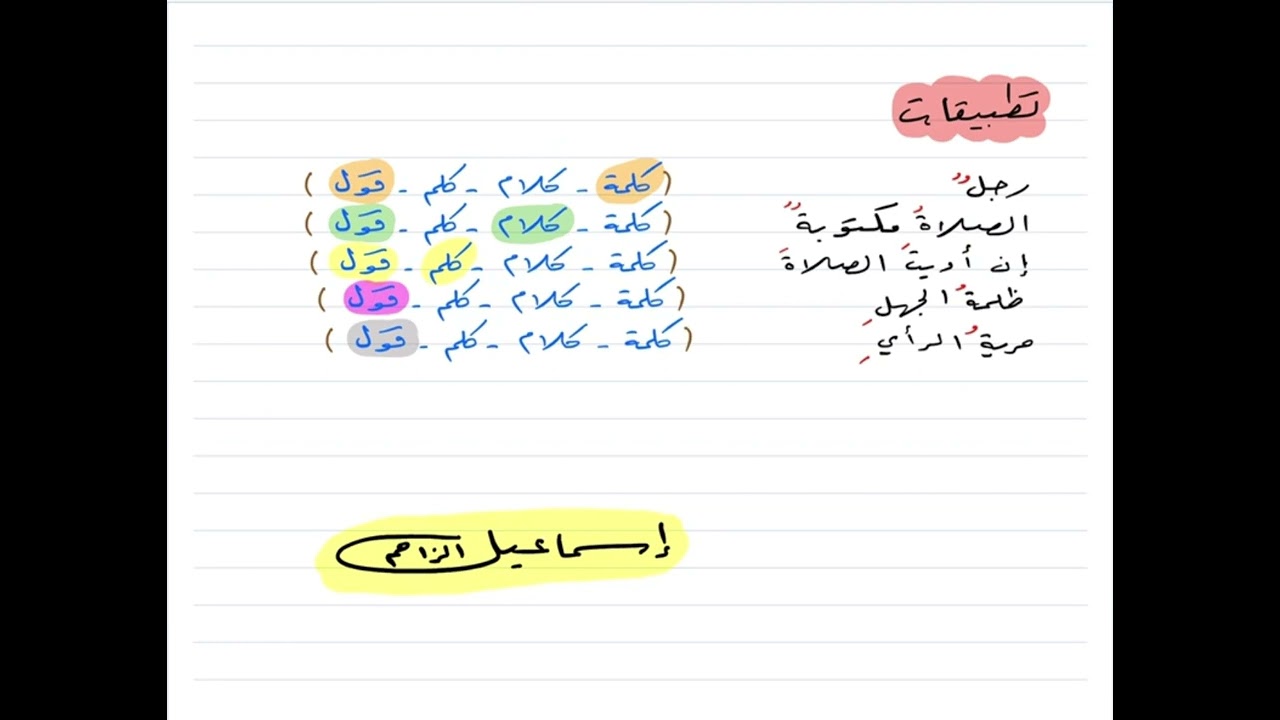 تطبيقات
رجلٌ (كلمة - كلام - كلم - قَول)
الصلاةُ مكتوبةٌ (كلمة - كلام - كلم - قَول)
إن أديتَ الصلاةَ (كلمة - كلام - كلم - قَول)
ظلمةُ الجهلِ (كلمة - كلام - كلم - قَول)
حريةُ الرأيِ (كلمة - كلام - كلم - قَول)
إسماعيل الزاحم